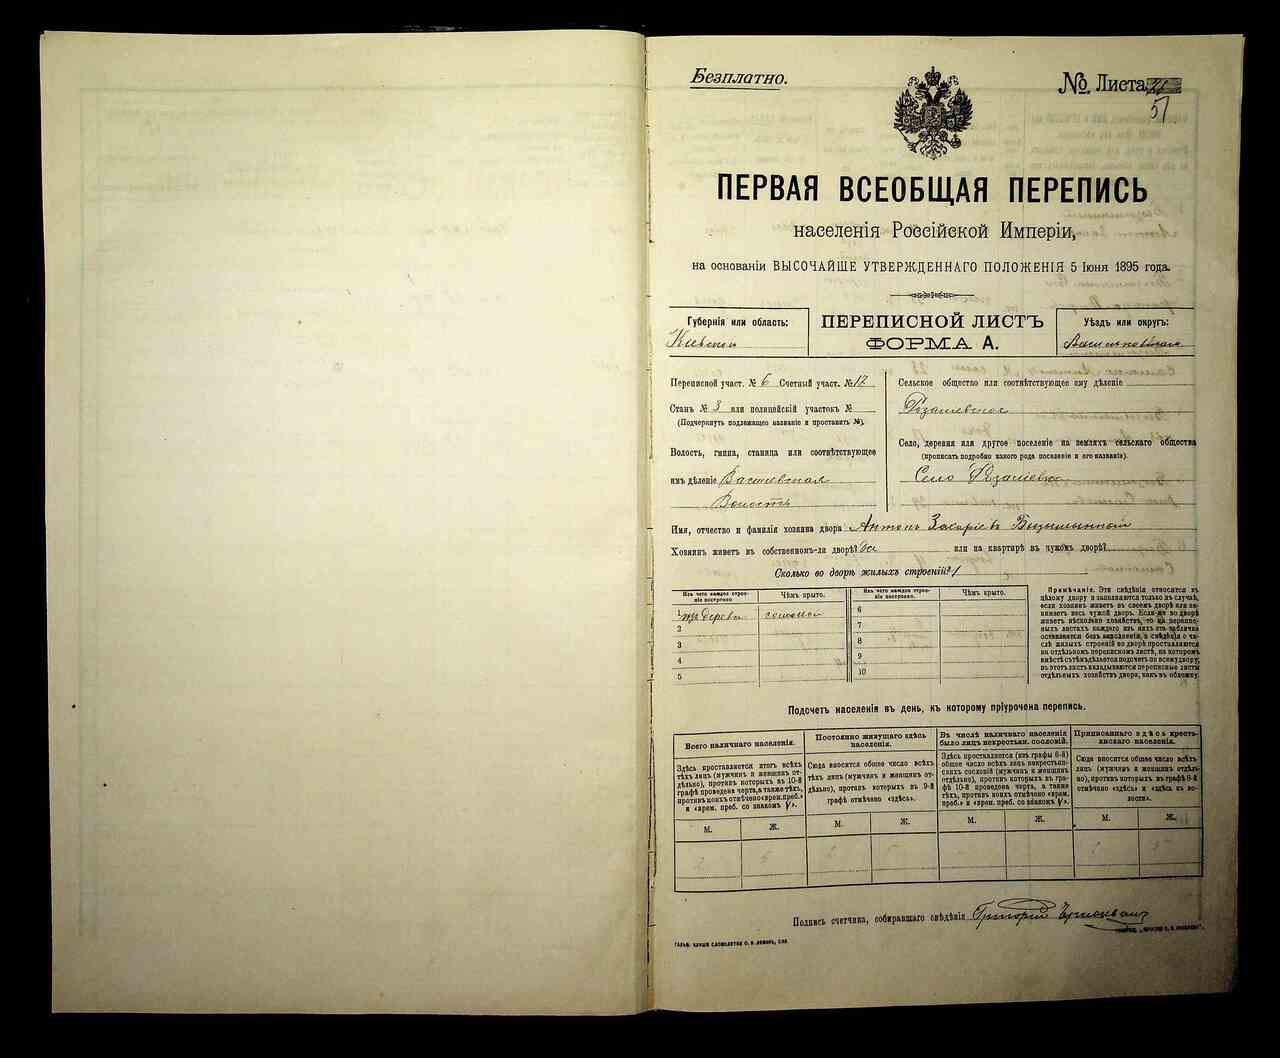 Безплатно.
№ Листа
51
ПЕРВАЯ ВСЕОБЩАЯ ПЕРЕПИСЬ
населенія Россійской Имперіи,
на основаніи ВЫСОЧАЙШЕ УТВЕРЖДЕННАГО ПОЛОЖЕНІЯ 5 Іюня 1895 года.
Губернія или область:
Кіевская
ПЕРЕПИСНОЙ ЛИСТЪ
ФОРМА А.
Уѣздъ или округъ:
Васильковскій
Переписной участ. № 6 Счетный участ. № 12
Станъ № 3 или полицейскій участокъ №
(Подчеркнуть подлежащее названіе и проставить №).
Волость, гмина, станица или соотвѣтствующее
имъ дѣленіе
Волость
Сельское общество или соотвѣтствующее ему дѣленіе
Село, деревня или другое поселеніе на земляхъ сельскаго общества
(прописать подробно какого рода поселеніе и его названіе).
Село
Имя, отчество и фамилія хозяина двора Антонъ Захаріевъ
Хозяинъ живетъ въ собственномъ-ли дворѣ? да или на квартирѣ въ чужомъ дворѣ?
Сколько во дворѣ жилыхъ строеній? 1
Изъ чего каждое строеніе построено. Чѣмъ крыто. Изъ чего каждое строеніе построено. Чѣмъ крыто.
1 изъ дерева соломой 6
2 7
3 8
4 9
5 10
Примѣчаніе. Эти свѣдѣнія относятся къ
цѣлому двору и заполняются только въ случаѣ,
если хозяинъ живетъ въ своемъ дворѣ или за-
нимаетъ весь чужой дворъ. Если-же во дворѣ
живетъ нѣсколько хозяйствъ, то на перепис-
ныхъ листахъ каждаго изъ нихъ эта табличка
оставляется безъ заполненія, а свѣдѣнія о чи-
слѣ жилыхъ строеній во дворѣ проставляются
на отдѣльномъ переписномъ листѣ, на которомъ
вмѣстѣ съ тѣмъ дѣлается подсчетъ по всему двору;
въ этотъ листъ вкладываются переписные листы
отдѣльныхъ хозяйствъ двора, какъ въ обложку.
Подсчетъ населенія въ день, къ которому пріурочена перепись.
Всего наличнаго населенія.
Здѣсь проставляется итогъ всѣхъ
тѣхъ лицъ (мужчинъ и женщинъ от-
дѣльно), противъ которыхъ въ 10-й
графѣ проведена черта, а также тѣхъ,
противъ коихъ отмѣчено «врем. преб.»
и «врем. преб. со знакомъ V».
Постоянно живущаго здѣсь
населенія.
Сюда вносится общее число всѣхъ
тѣхъ лицъ (мужчинъ и женщинъ от-
дѣльно), противъ которыхъ въ 9-й
графѣ отмѣчено «здѣсь».
Въ числѣ наличнаго населенія
было лицъ некрестьян. сословій.
Здѣсь проставляется (изъ графы 6-й)
общее число всѣхъ лицъ некрестьян-
скихъ сословій (мужчинъ и женщинъ
отдѣльно), противъ которыхъ въ гра-
фѣ 10-й проведена черта, а также
тѣхъ, противъ коихъ отмѣчено «врем.
преб.» и «врем. преб. со знакомъ V».
Приписаннаго здѣсь кресть-
янскаго населенія.
Сюда вносится общее число всѣхъ
лицъ (мужчинъ и женщинъ отдѣль-
но), противъ которыхъ въ графѣ 8-й
отмѣчено «здѣсь» и «здѣсь въ во-
лости».
М. Ж. М. Ж. М. Ж. М. Ж.
2 5
Подпись счетчика, собиравшаго свѣдѣнія Григорій